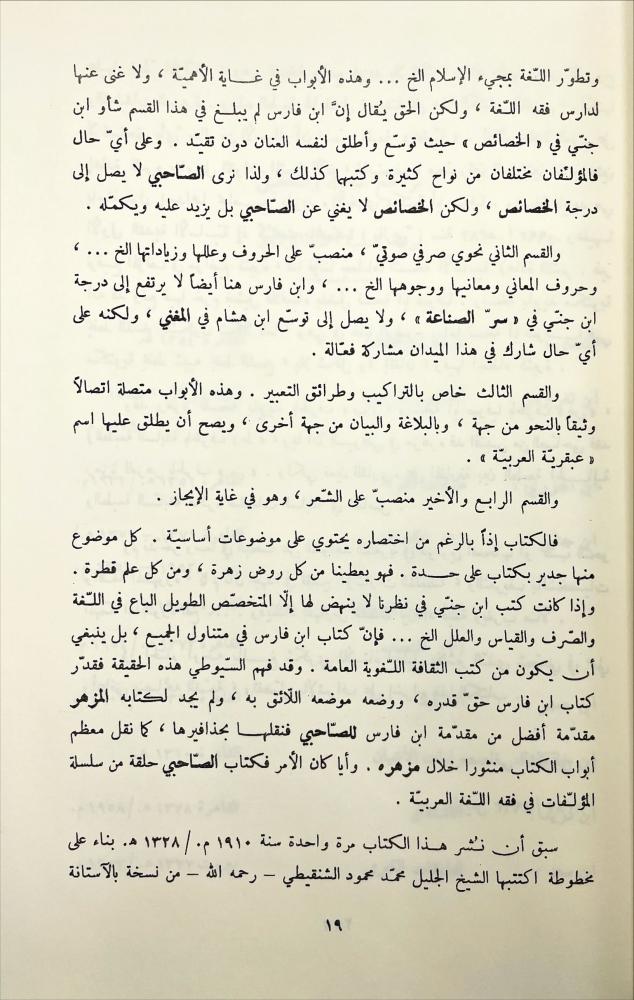 وتطوّر اللّغة بمجيء الإسلام الخ ... وهذه الأبواب في غاية الأهميّة ، ولا غنى عنها
لدارس فقه اللّغة ، ولكن الحق يُقال إنَّ ابن فارس لم يبلغ في هذا القسم شأو ابن
جنّي في « الخصائص » حيث توسّع وأطلق لنفسه العنان دون تقيّد . وعلى أيّ حال
فالمؤلّفان مختلفان من نواح كثيرة وكتبهما كذلك ، ولذا نرى الصّاحبي لا يصل إلى
درجة الخصائص ، ولكن الخصائص لا يغني عن الصّاحبي بل يزيد عليه ويكمّله .
والقسم الثاني نحوي صرفي صوتيّ ، منصبّ على الحروف وعللها وزياداتها الخ ... ،
وحروف المعاني ومعانيها ووجوهها الخ ... ، وابن فارس هنا أيضاً لا يرتفع إلى درجة
ابن جنّي في « سرّ الصناعة » ، ولا يصل إلى توسّع ابن هشام في المغني ، ولكنه على
أيّ حال شارك في هذا الميدان مشاركة فعّالة .
والقسم الثالث خاص بالتراكيب وطرائق التعبير . وهذه الأبواب متصلة اتصالاً
وثيقاً بالنحو من جهة ، وبالبلاغة والبيان من جهة أخرى ، ويصح أن يطلق عليها اسم
« عبقريّة العربيّة » .
والقسم الرابع والأخير منصبّ على الشّعر ، وهو في غاية الإيجاز .
فالكتاب إذاً بالرغم من اختصاره يحتوي على موضوعات أساسيّة . كل موضوع
منها جدير بكتاب على حدة . فهو يعطينا من كل روض زهرة ، ومن كل علم قطرة .
وإذا كانت كتب ابن جنّي في نظرنا لا ينهض لها إلّا المتخصّص الطويل الباع في اللّغة
والصّرف والقياس والعلل الخ ... فإنّ كتاب ابن فارس في متناول الجميع ، بل ينبغي
أن يكون من كتب الثقافة اللّغوية العامة . وقد فهم السّيوطي هذه الحقيقة فقدّر
كتاب ابن فارس حقّ قدره ، ووضعه موضعه اللّائق به ، ولم يجد لكتابه المزهر
مقدّمة أفضل من مقدّمة ابن فارس للصّاحبي فنقلها بحذافيرها ، كما نقل معظم
أبواب الكتاب منثورا خلال مزهره . وأيا كان الأمر فكتاب الصّاحبي حلقة من سلسلة
المؤلّفات في فقه اللّغة العربيّة .
سبق أن نُشر هذا الكتاب مرة واحدة سنة ١٩١٠ م. / ١٣٢٨ ه. بناء على
مخطوطة اكتتبها الشيخ الجليل محمّد محمود الشنقيطي – رحمه الله – من نسخة بالآستانة
١٩